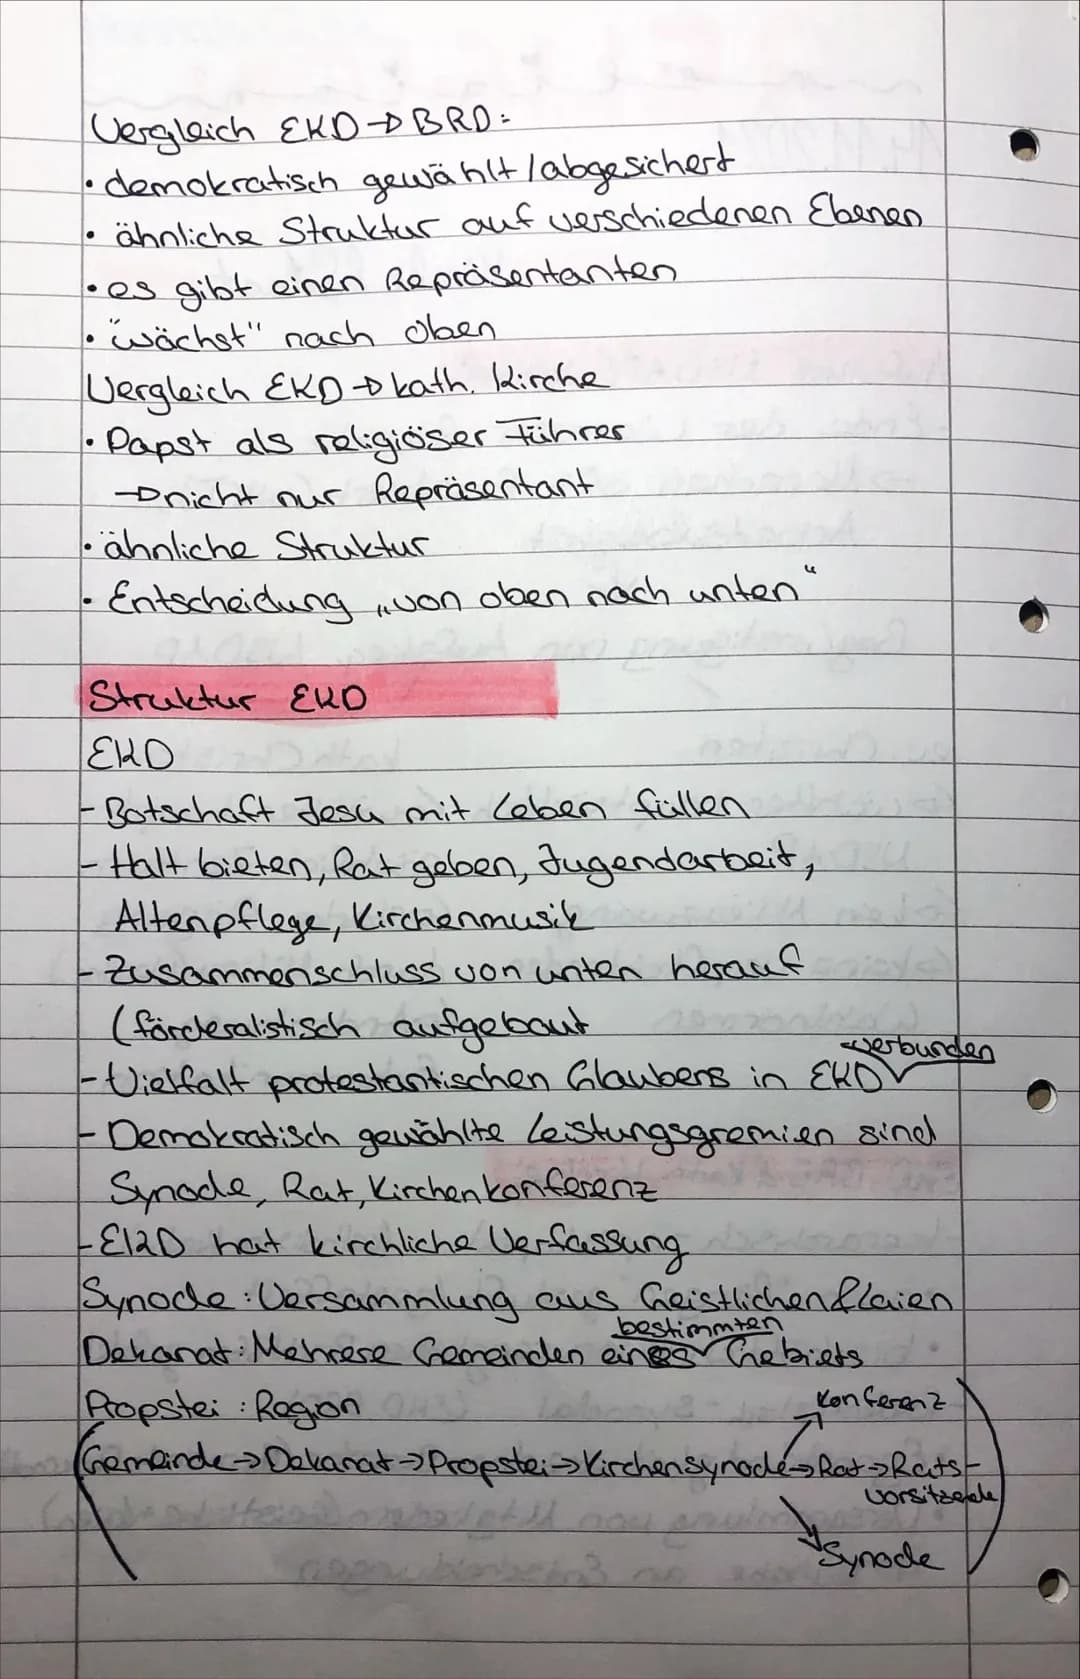 Vergleich EKD → BRD:
• demokratisch gewählt/abgesichert
• ähnliche Struktur auf verschiedenen Ebenen
• es gibt einen Repräsentanten
• "wächst" nach oben
Vergleich EKD → kath. Kirche
• Papst als religiöser Führer
→ nicht nur Repräsentant
• ähnliche Struktur
• Entscheidung „von oben nach unten“
Struktur EKD
EKD
- Botschaft Jesu mit Leben füllen
- Halt bieten, Rat geben, Jugendarbeit,
Altenpflege, Kirchenmusik
- Zusammenschluss von unten herauf
(förderalistisch aufgebaut
verbunden
- Vielfalt protestantischen Glaubens in EKD
- Demokratisch gewählte Leistungsgremien sind
Synode, Rat, Kirchenkonferenz
- EKD hat kirchliche Verfassung
Synode: Versammlung aus Geistlichen & Laien
bestimmten
Dekanat: Mehrere Gemeinden eines Gebiets
Propstei: Region
Konferenz
(Gemeinde → Dekanat → Propstei → Kirchensynode → Rat → Rats-
vorsitzende)
Synode